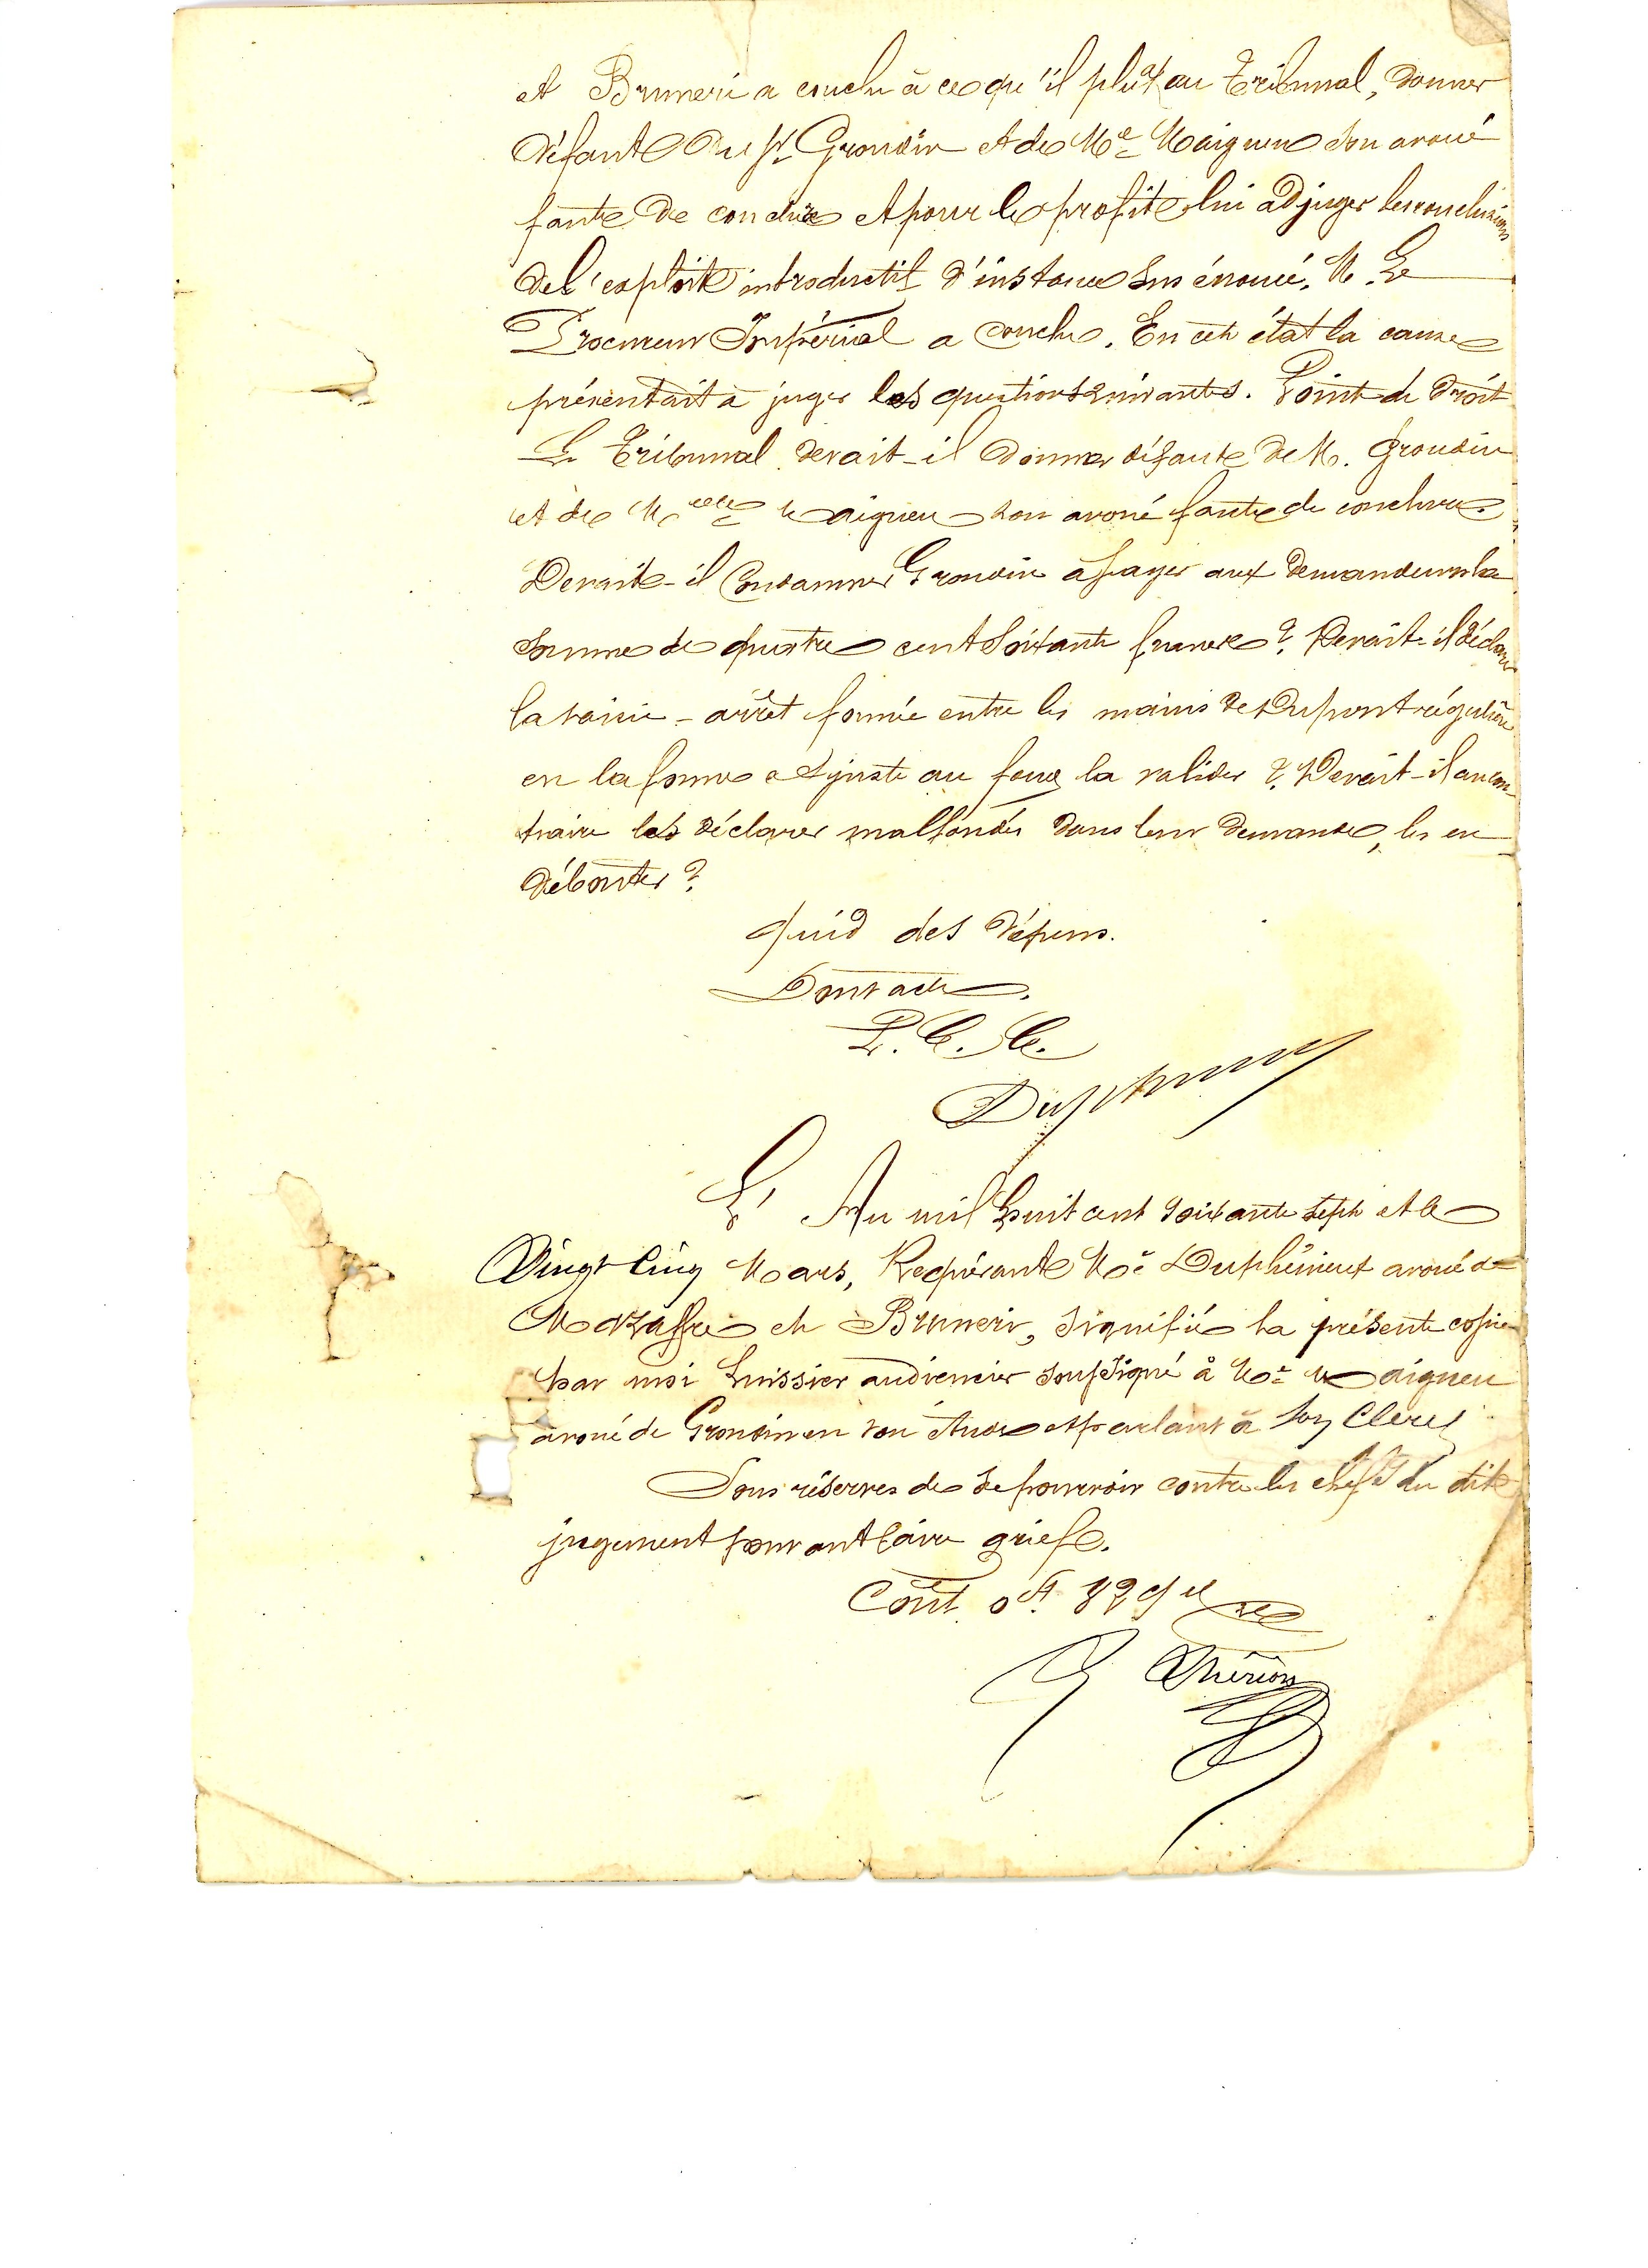 et Bruneri a conclu à ce qu'il plût au Tribunal, donner
défaut du Sr Grondin et de Me Maigneu son avoué
faute de conclure et pour le profit lui adjuger les conclusions
de l'exploit introductif d'instance sus énoncé. M. Le
Procureur Impérial a conclu. En cet état la cause
présentait à juger les questions suivantes. Point de droit
Le Tribunal devait-il donner défaut de M. Grondin
et de Me Maigneu son avoué faute de conclure.
Devait-il Condamner Grondin à payer aux demandeurs la
somme de quatre cent soixante francs? Devait-il déclarer
la saisie-arrêt formée entre les mains de Dupont régulière
en la forme et juste au fond la valider? Devait-il au con-
traire les déclarer mal fondés dans leur demande, les en
débouter?
Quid des dépens.
Dont acte.
P. C. C.
L'An mil huit cent soixante sept et le
Vingt Cinq Mars, Requérant Me Duphénieux avoué de
Mazaffre et Bruneri, signifié la présente copie
par moi huissier audiencier soussigné à Me Maigneu
avoué de Grondin en son étude et parlant à son Clerc
Sous réserves de se pourvoir contre les chefs du dit
jugement pouvant faire grief.
Coût